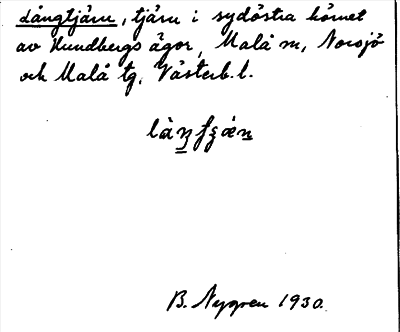 Långtjärn, tjärn i sydöstra hörnet
av Hundbergs ägor, Malå sn, Norsjö
och Malå tg, Västerb. l.
B. Nygren 1930.